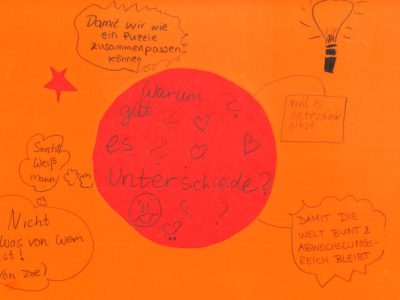 Damit wir wie
ein Puzzle
zusammenpassen
können
Warum
gibt
es
Unterschiede?
Weil es
unterschiede
gibt
Sonst
weiß
man
Nicht
was von wem
ist!
von Zoe)
DAMIT DIE
WELT BUNT &
ABWECHSLUNGS-
REICH BLEIBT